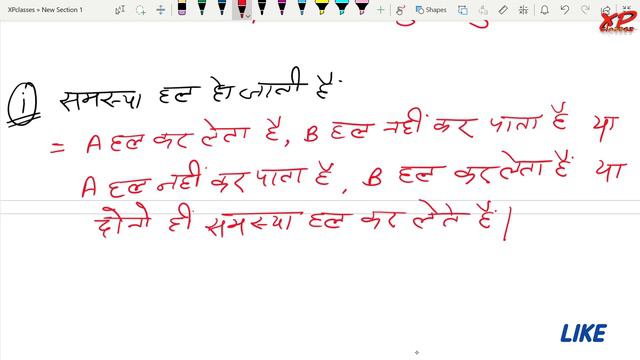 XPclasses » New Section 1
Shapes
XP
classes
(i) समस्या हल हो जाती है
= A हल कर लेता है, B हल नहीं कर पाता है या
A हल नहीं कर पाता है, B हल कर लेता है या
दोनो ही समस्या हल कर लेते हैं।
LIKE